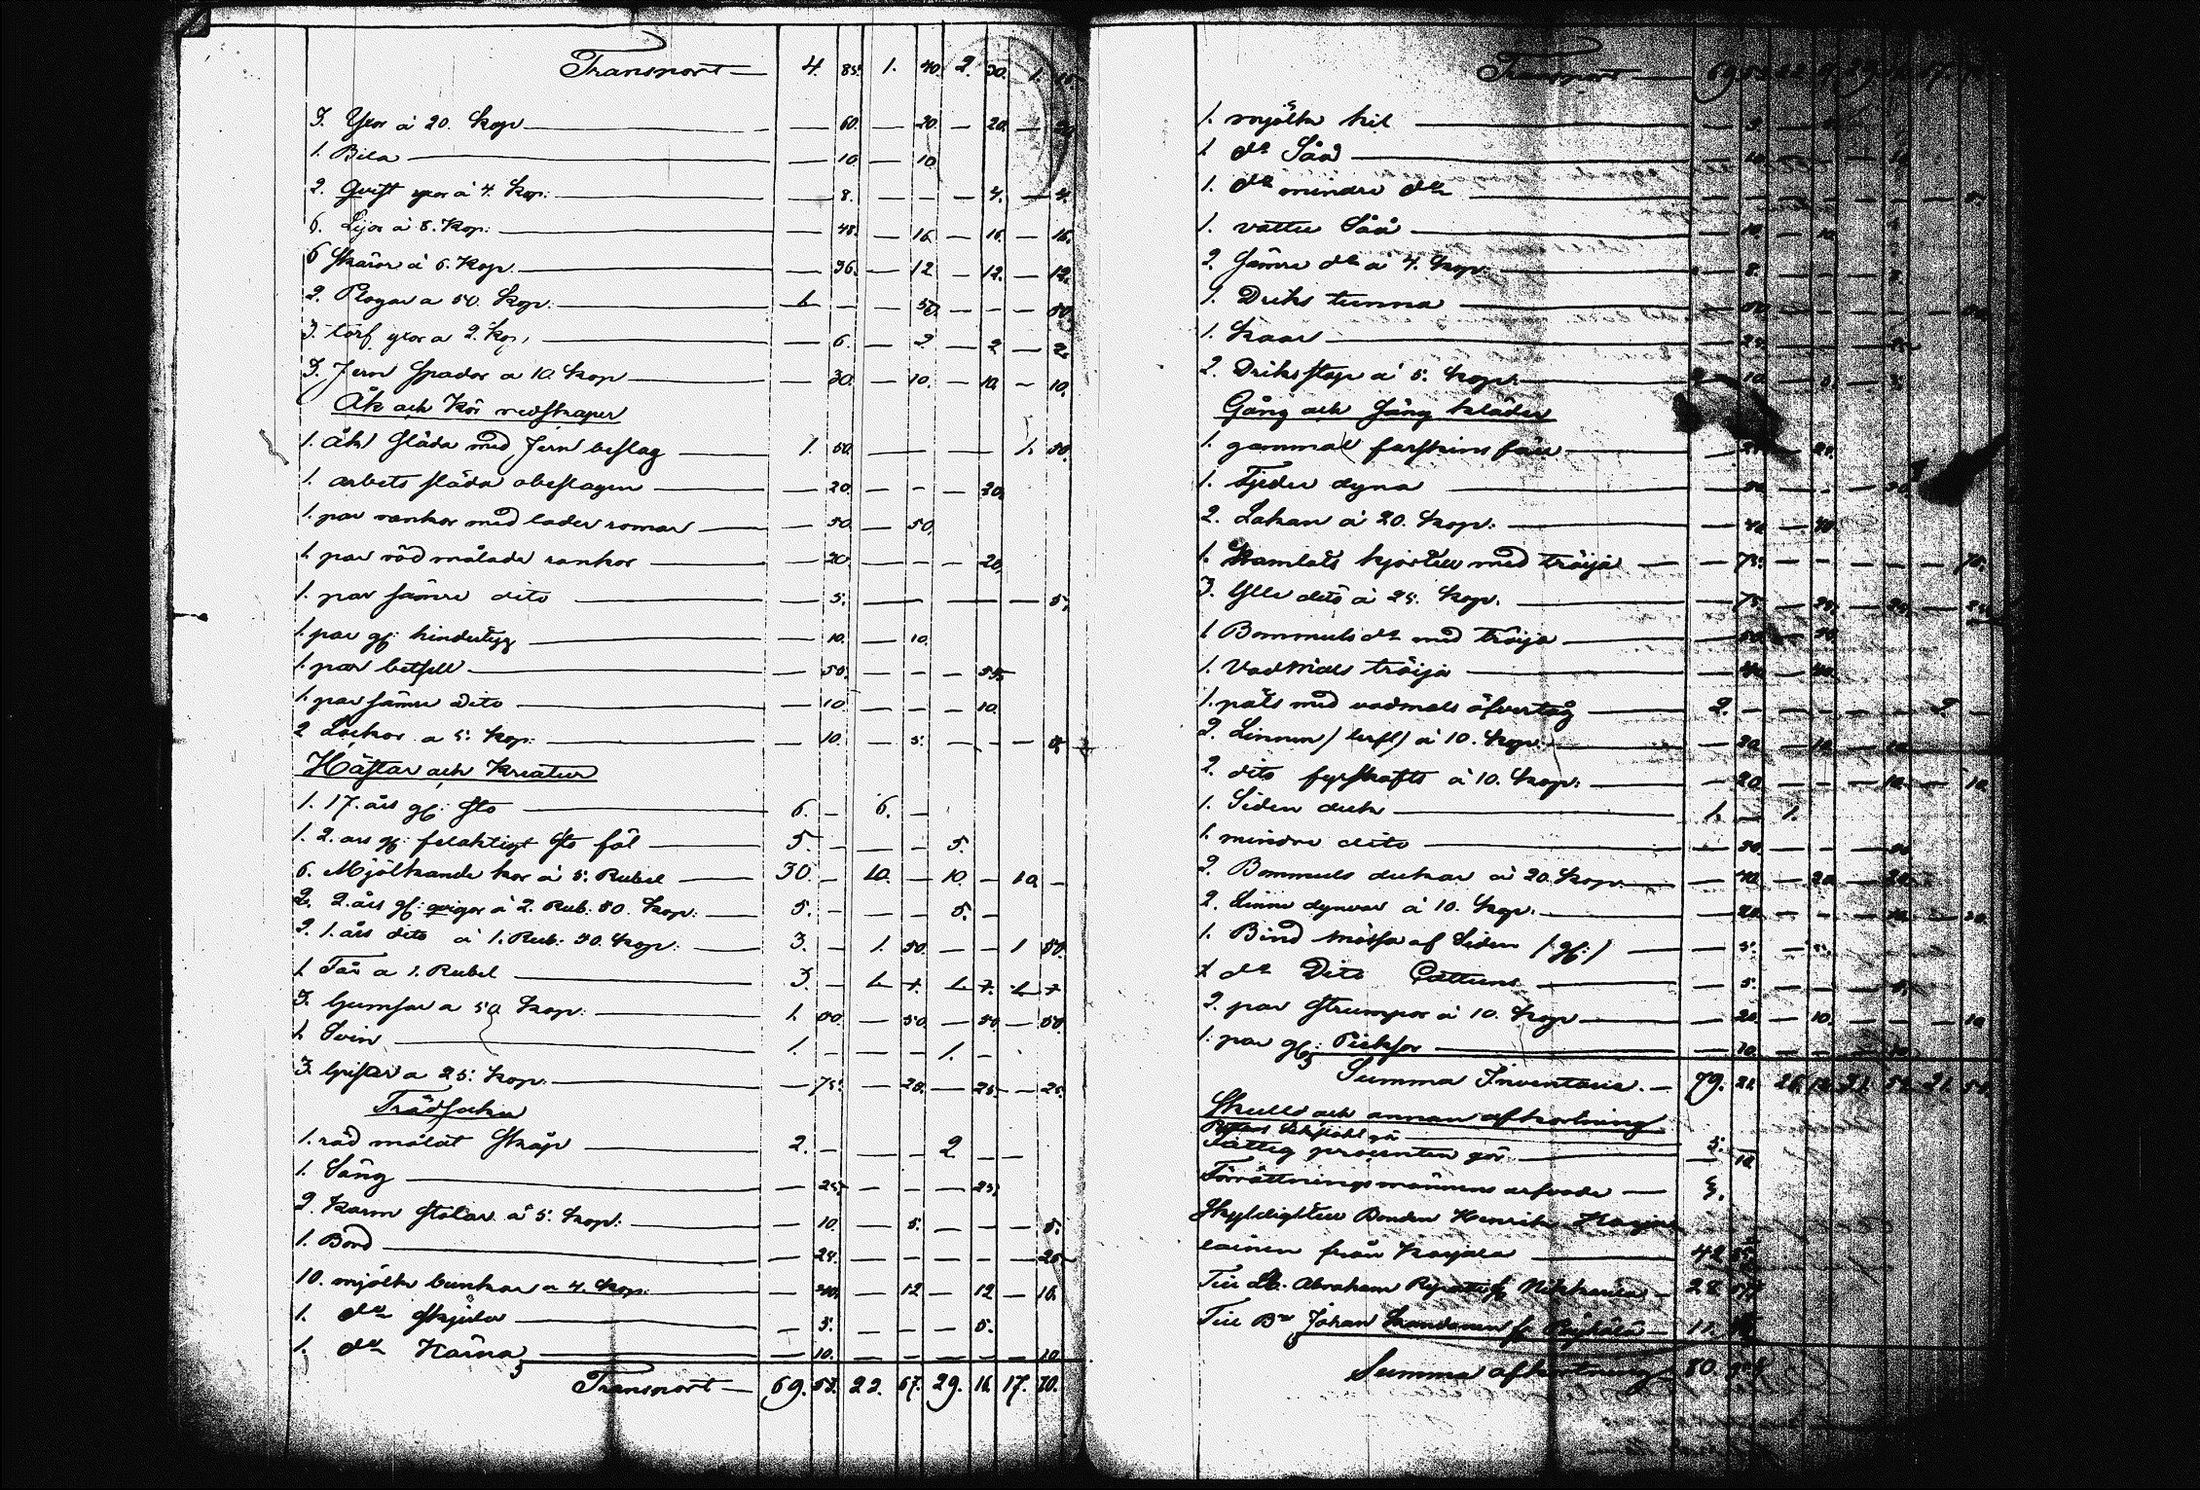 Transport — 4. 85. 1. 40. 2. 30. 1. 15.
3. Yxor à 20. Kop — 60. — 20. — 20. — 20.
1. Bila — 10 — 10
2. Qvist yxor à 4. Kop: — 8. — — — 4. — 4.
6. Lijor à 8. Kop: — 48. — 16. — 16. — 16.
6 Skäror à 6. Kop. — 36. — 12 — 12. — 12.
2. Plogar a 50. Kop. 1. — — 50. — — — 50.
3. torf yxor a 2. Kop, — 6. — 2 — 2 — 2.
3. Jern Spador a 10. Kop — 30. — 10. — 10. — 10.
Åk och Kör redskaper
1. åk släda med Jern beslag 1. 50. — — — — 1. 50.
1. arbets släda obeslagen — 20. — — — 20.
1. par rankor med läder romar — 50. — 50.
1. par röd målade rankor — 20. — — — 20.
1. par sämre dito — 5. — — — — — 5.
1. par gl: hindertyg — 10. — 10.
1. par betsell — 50. — — — 50.
1. par sämre Dito — 10. — — — 10.
2 Löckor a 5. Kop: — 10. — 5. — — — 5.
Hästar och Kreatur
1. 17. års gl: Sto 6. — 6. —
1. 2. års gl: felaktigt Sto föl 5. — — — 5.
6. Mjölkande kor à 5. Rubel 30. — 10. — 10. — 10. —
2. 2. års gl: qvigor à 2. Rub: 50. Kop: 5. — — — 5. —
2. 1. års dito à 1. Rub: 50. Kop: 3. — 1. 50. — — 1 50.
3. Får a 1. Rubel 3. — 1. — 1. — 1. —
3. Gumsar a 50. Kop: 1. 50. — 50. — 50. — 50.
1. Svin 1. — — — 1. —
3. Grisar a 25. Kop: — 75. — 25. — 25. — 25.
Trädsaker
1. röd målat Skåp 2. — — — 2 — —
1. Säng — 25. — — — 25.
2. Karm Stolar à 5. Kop: — 10. — 5. — — — 5.
1. Bord — 25. — — — — — 25
10. mjölk bunkar a 4. Kop: — 40. — 12 — 12 — 16.
1. do Skjula — 5. — — — 5.
1. do Kärna — 10. — — — — — 10
Transport — 69. 52. 22. 67. 29. 16. 17. 70.
Transport
1. mjölk kil — 5.
1 do Såå — 10. — — — 10
1. do mindre do — — — — — — — 5.
1. vatten Såå — 10. — 10.
2. sämre do à 4. Kop: — 8. — — — 8.
1. Dricks tunna — 50. — — — — — 50.
1. Kaar — 25. — — — 25
2. Driksstop à 5. Kop: — 10. — 5. — 5.
Gång och Säng kläder
1. gammal fårskins fäll — 25. — 25.
1. Fjeder dyna — 30. — — — 30.
2. Lakan à 20. Kop. — 40. — 40.
1. Kamlots kjortel med tröija — 75. — — — — — 75.
3. Ylle dito à 25. Kop. — 75. — 25. — 25. — 25.
1 Bommuls do med tröija — 50. — 50.
1. Vadmals tröija — 40. — 40.
1. päls med vadmals öfvertåg 2. — — — — — 2. —
2. Linnen / lerft / à 10. Kop: — 20. — 10. — 10
2. dito fyrskafts à 10. Kop: — 20. — — — 10. — 10.
1. Siden duk 1. — 1.
1. mindre dito — 50. — — — 50.
2. Bommuls dukar à 20. Kop: — 40. — 20. — 20.
2. Linne dynvar à 10. Kop: — 20. — — — 10. — 10.
1. Bind mössa af Siden /: gl: / — 5. — 5.
1 do Dito Cattuns — 5. — — — 5.
2. par Strumpor à 10. Kop — 20. — 10. — — — 10
1. par gl: Pieksor — 10. — — — 10.
Summa Inventarie. — 79.
Skuld och annan afkortning
Fattig procenten gör
Förrättningsmännens arfvode — 3.
Skyldigt till Bonden Henrik
lainen från Karjala 42
Till Bn. Abraham
Till Bn Johan 11.
Summa afkortning 80.